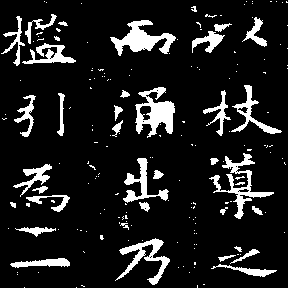 以杖導之
而涌出乃
檻引為一